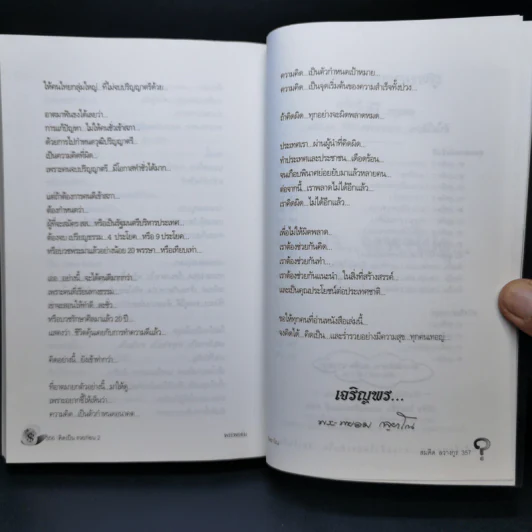 ให้คนไทยกลุ่มใหญ่.. ที่ไม่จบปริญญาตรีด้วย...
อาตมาฟันธงได้เลยว่า...
การแก้ปัญหา.. ไม่ให้คนชั่วเข้าสภา...
ด้วยการไปกำหนดวุฒิปริญญาตรี...
เป็นความคิดที่ผิด...
เพราะคนจบปริญญาตรี.. มีโอกาสทำชั่วได้มาก...
แต่ถ้าต้องการคนดีเข้าสภา...
ต้องกำหนดว่า...
ผู้ที่จะสมัคร ส.ส... หรือเป็นรัฐมนตรีบริหารประเทศ...
ต้องจบ เปรียญธรรม.. 4 ประโยค.. หรือ 9 ประโยค...
หรือบวชพระมาแล้วอย่างน้อย 20 พรรษา... หรือเทียบเท่า...
เออ.. อย่างนี้.. จะได้คนดีมากกว่า...
เพราะคนที่เรียนทางธรรม...
เขาจะสอนให้ทำดี ละชั่ว...
หรือบวชรักษาศีลมาแล้ว 20 ปี...
แสดงว่า.. ชีวิตคุ้นเคยกับการทำความดีแล้ว...
คิดอย่างนี้.. ยังเข้าท่ากว่า...
ที่อาตมายกตัวอย่างนี้.. มาให้ดู...
เพราะอยากชี้ให้เห็นว่า...
ความคิด... เป็นตัวกำหนดอนาคต...
คิดเป็น 2
ความคิด...เป็นตัวกำหนดเป้าหมาย...
ความคิด...เป็นจุดเริ่มต้นของความสำเร็จทั้งปวง...
ถ้าคิดผิด...ทุกอย่างจะผิดพลาดหมด...
ประเทศเรา...ผ่านผู้นำที่คิดผิด...
ทำประเทศและประชาชน...เดือดร้อน...
จนเกือบพินาศย่อยยับมาแล้วหลายคน...
ต่อจากนี้...เราพลาดไม่ได้อีกแล้ว...
เราคิดผิด...ไม่ได้อีกแล้ว...
เพื่อไม่ให้ผิดพลาด...
เราต้องช่วยกันคิด...
เราต้องช่วยกันทำ...
เราต้องช่วยกันแนะนำ...ในสิ่งที่สร้างสรรค์...
และเป็นคุณประโยชน์ต่อประเทศชาติ...
ขอให้ทุกคนที่อ่านหนังสือเล่มนี้...
จงคิดได้...คิดเป็น...และร่ำรวยอย่างมีความสุข...ทุกคนเทอญ...
เจริญพร...
พระพยอม กลฺยาโณ
สมคิด ลวางกูร 167